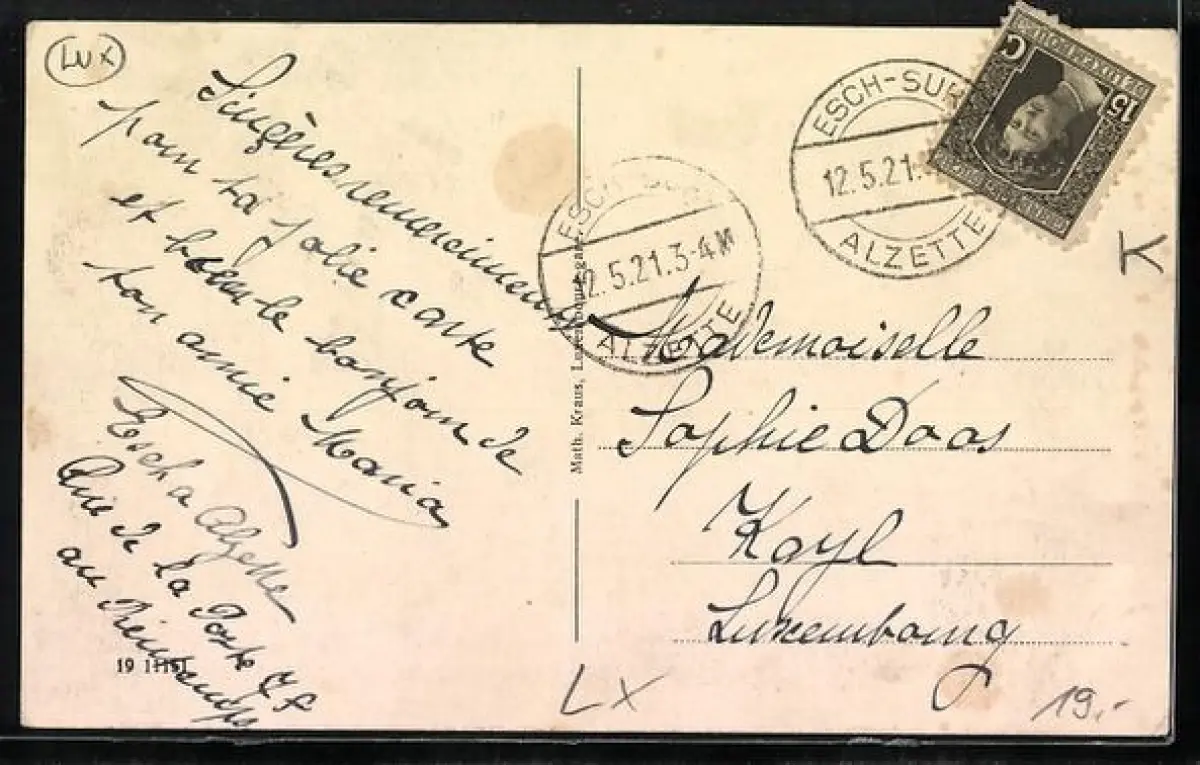 LUX
Sincères remerciments
pour ta jolie carte
et bien le bonjour de
ton amie Maria
Esch a Alzette
Rue de la Poste
au Printemps
19 11151
Math. Kraus,
ESCH-SUR
12.5.21.3-4 M
ALZETTE
ESCH-SUR
12.5.21.
ALZETTE
15 C
K
Mademoiselle
Sophie Daas
Kayl
Luxembourg
LX
19.-